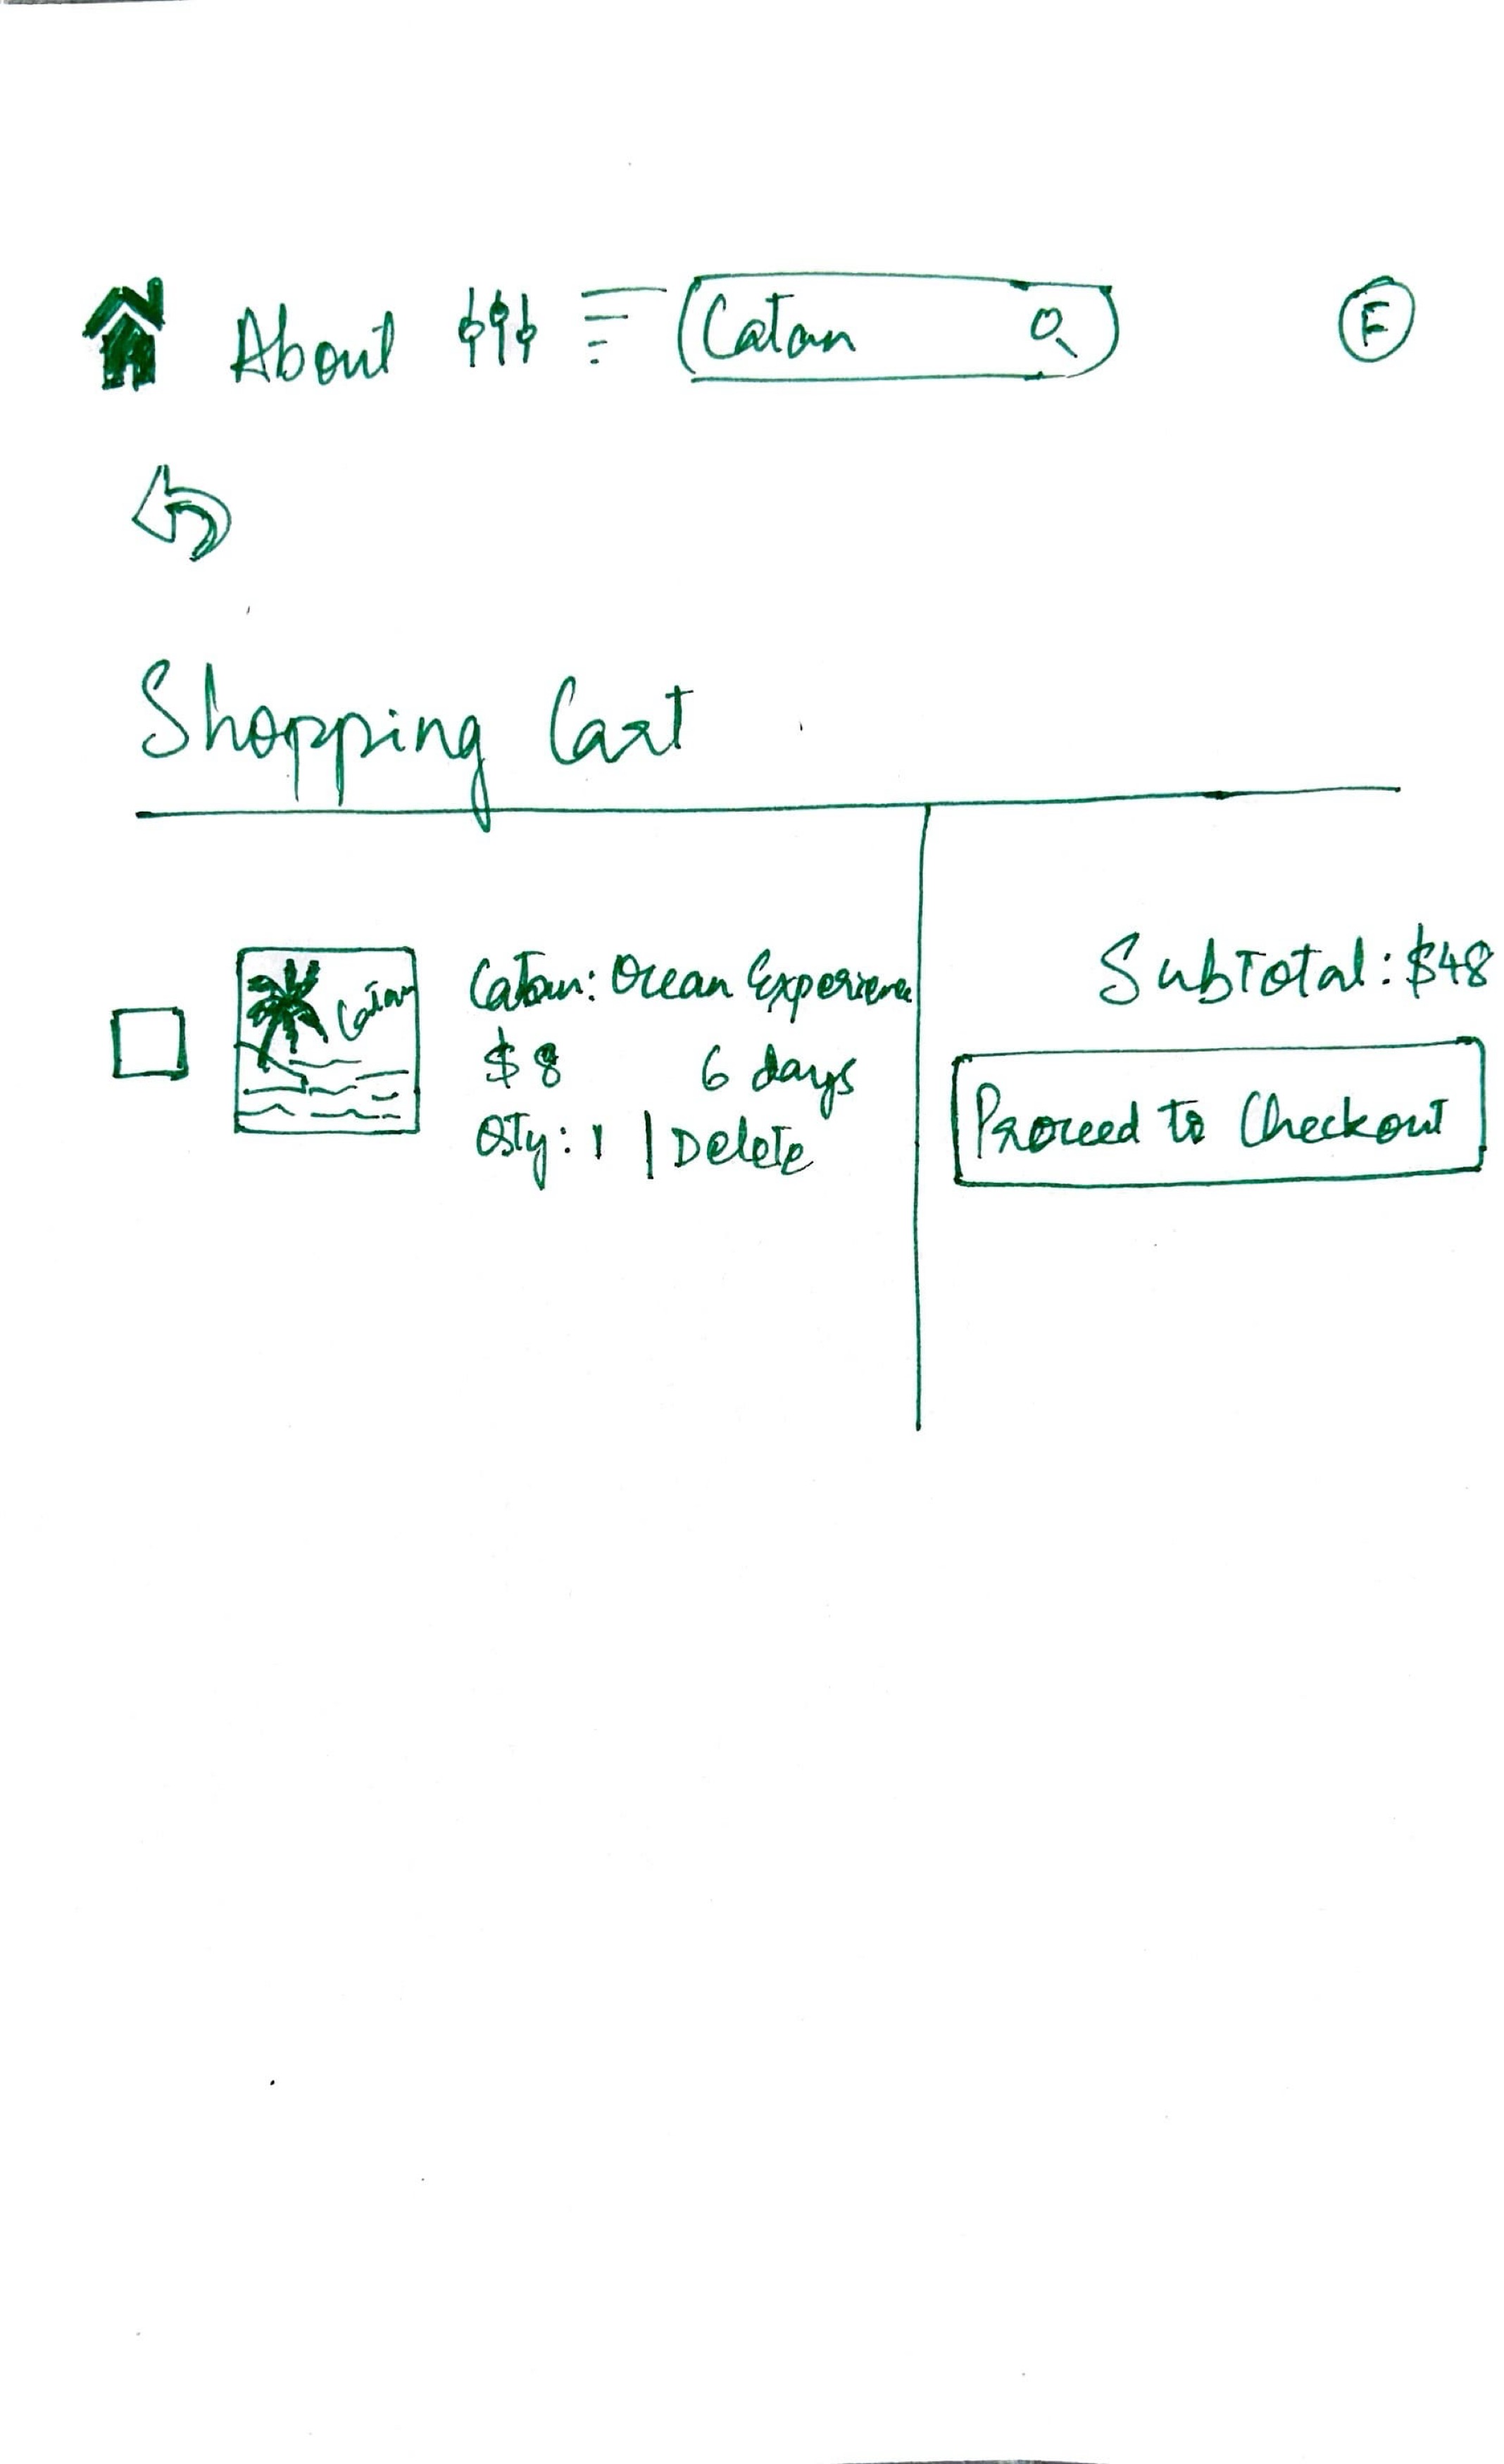 About
Catan
E
Shopping Cart
Catan
Catan: Ocean Experience
$8 6 days
Qty: 1 | Delete
SubTotal: $48
Proceed to Checkout